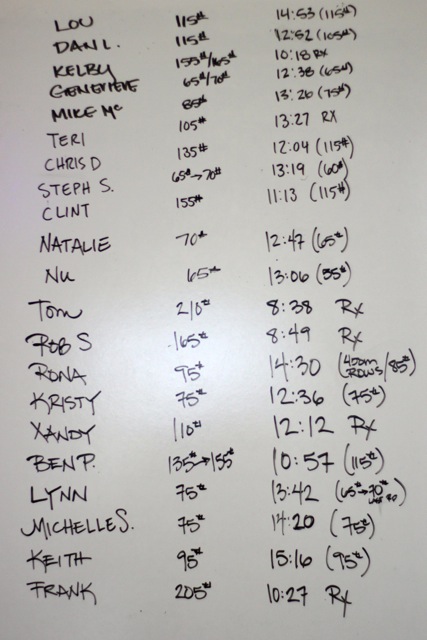 LOU 115# 14:53 (115#)
DAN L. 115# 12:52 (105#)
KELBY 155#/165# 10:18 RX
GENEVIEVE 65#/70# 12:38 (65#)
MIKE Mc 85# 13:26 (75#)
TERI 105# 13:27 RX
CHRIS D 135# 12:04 (115#)
STEPH S. 65#→70# 13:19 (60#)
CLINT 155# 11:13 (115#)
NATALIE 70# 12:47 (65#)
NU 65# 13:06
Tom 210# 8:38 Rx
ROB S 165# 8:49 Rx
RONA 95# 14:30 (450m ROWS/85#)
KRISTY 75# 12:36 (75#)
XANDY 110# 12:12 Rx
BEN P. 135#→155# 10:57 (115#)
LYNN 75# 13:42 (65#→70#
MICHELLE S. 75# 14:20 (75#)
KEITH 95# 15:16 (95#)
FRANK 205# 10:27 Rx